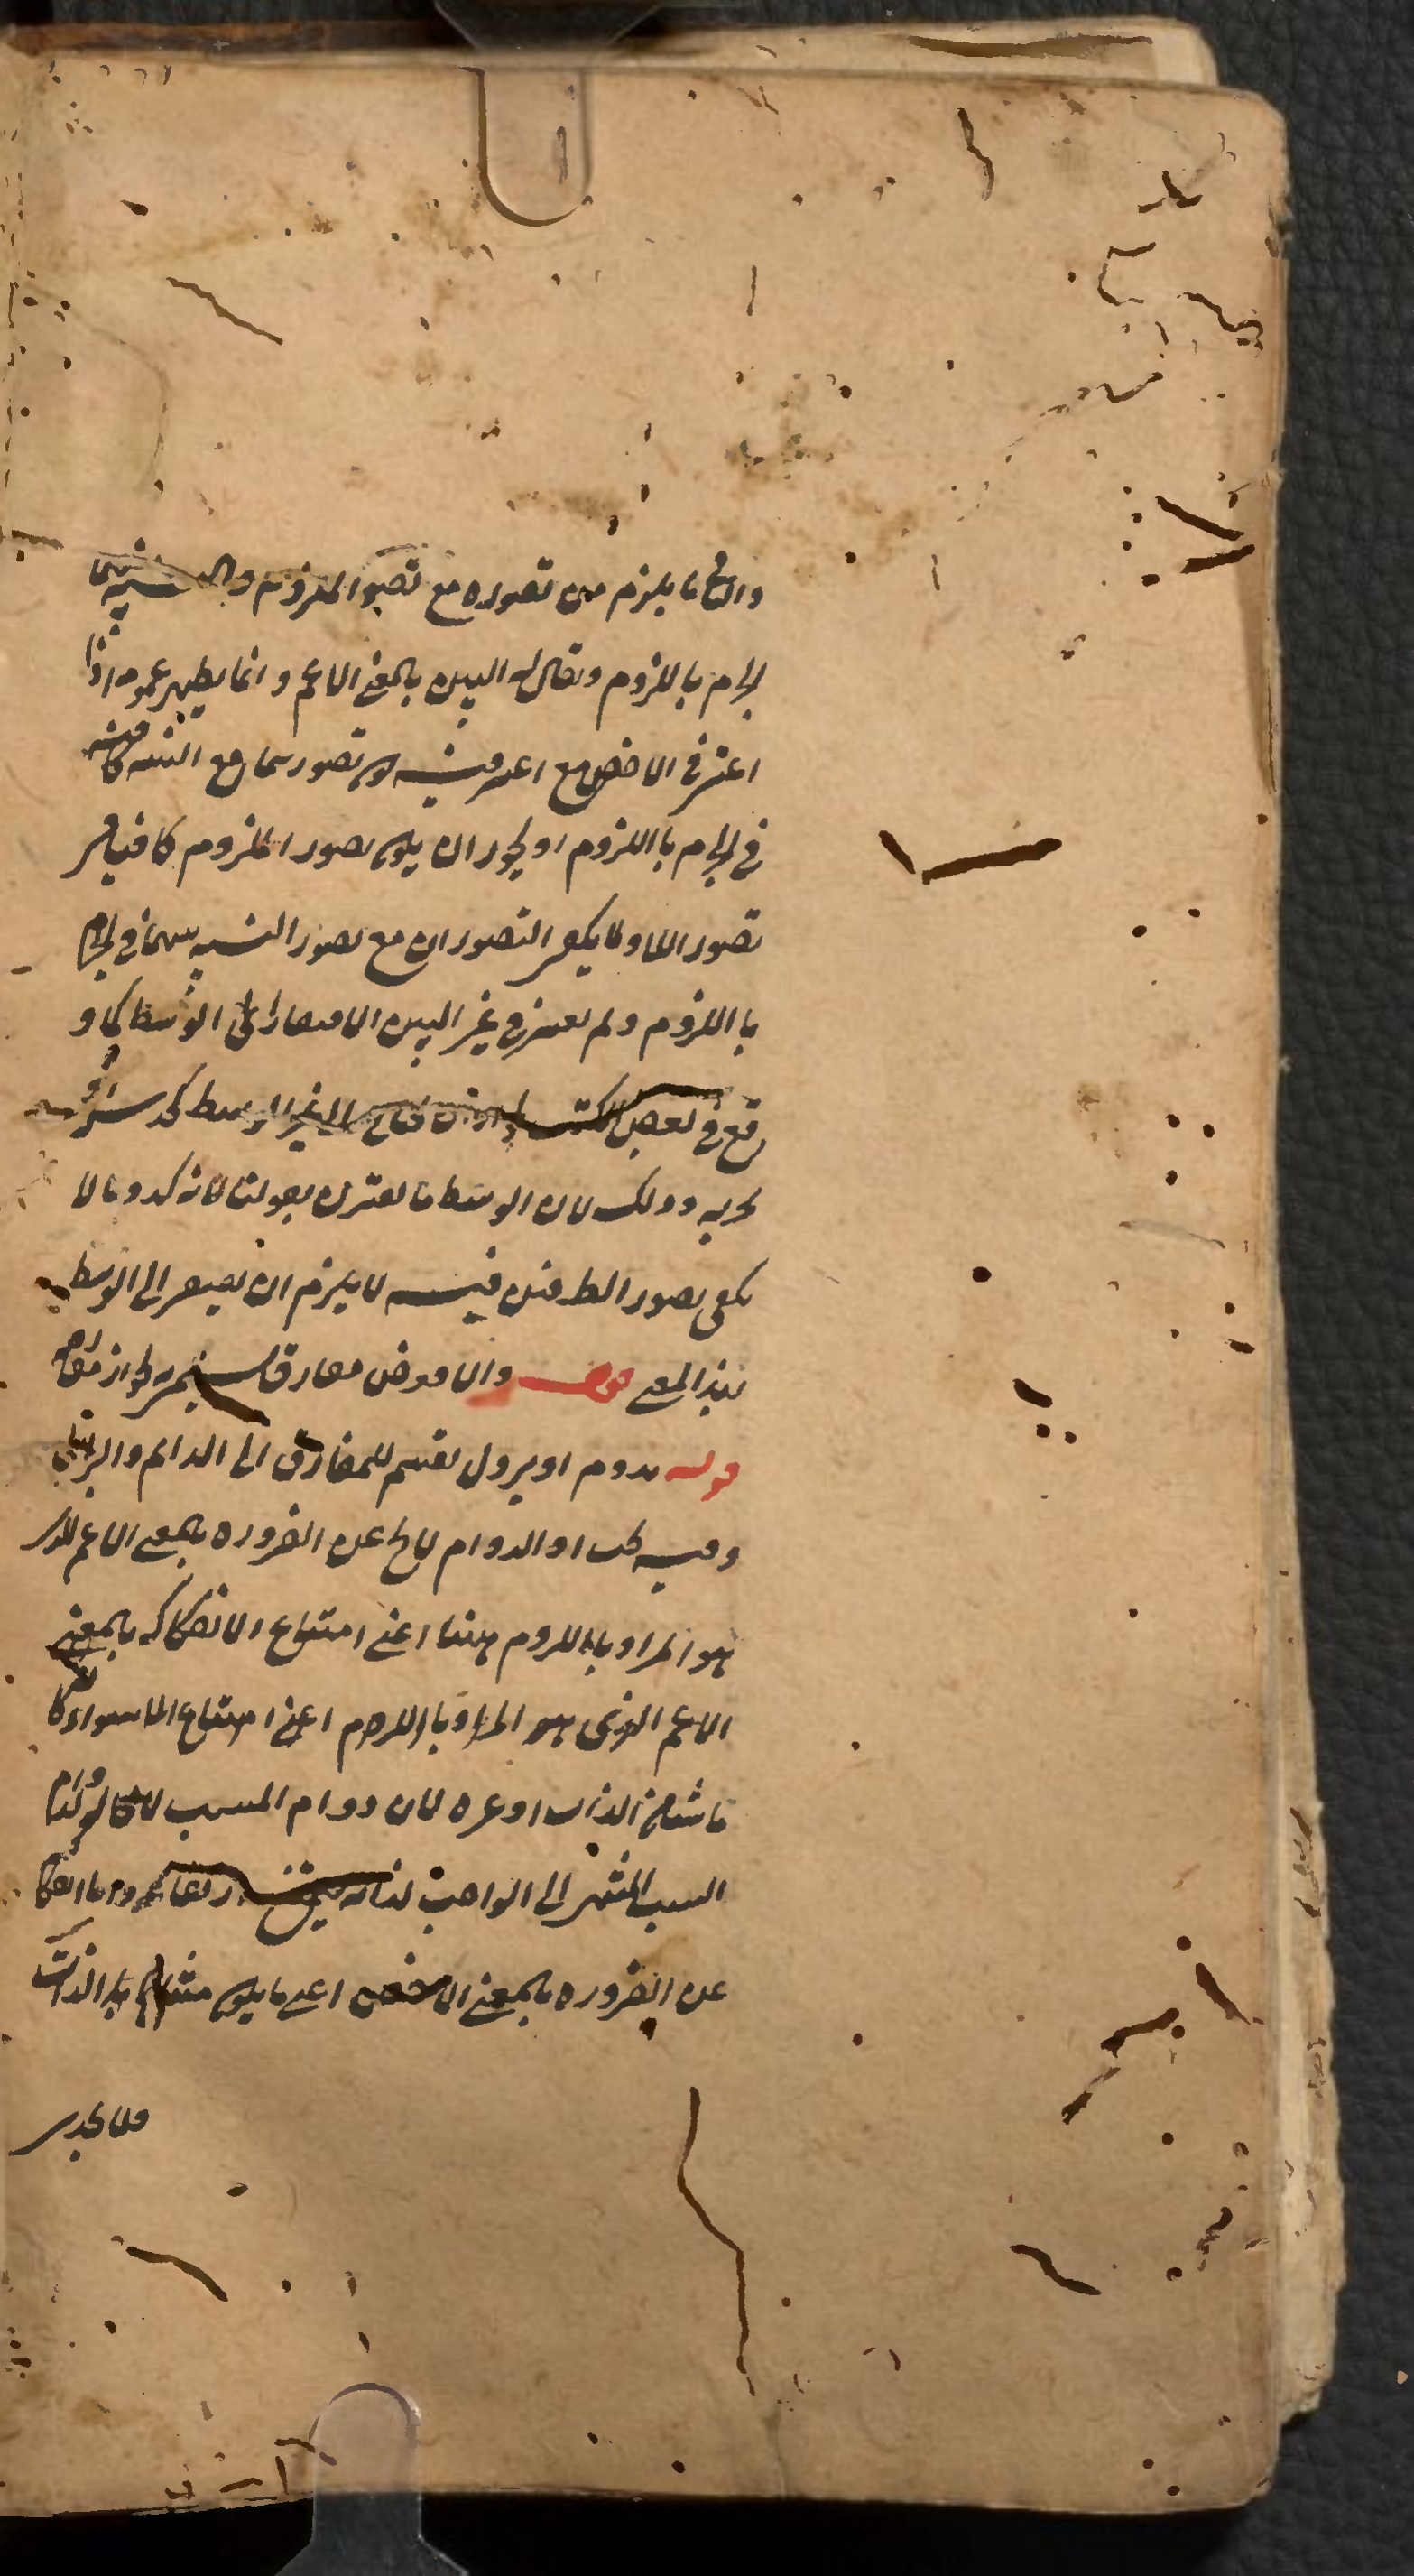 والثانى ما يلزم من تصوره مع تصور الملزوم والنسبة بينهما
الجزم باللزوم ويقال له البين بالمعنى الاعم وانما يظهر عمومه اذا
اعتبر فى الاخص مع اعتبر فيه كون تصورهما مع النسبة كافيه
فى الجزم باللزوم او يجوز ان يكون تصور الملزوم كافيا فى
تصور اللازم ولا يكفى التصوران مع تصور النسبة بينهما فى الجزم
باللزوم ولم يعتبر فى غير البين الافتقار الى الوسط كما و
قع فى بعض الكتب الى الوسط كحدس او
تجربه وذلك لان الوسط ما يقترن بقولنا لانه كذا وما لا
يكفى تصور الطرفين فيه لا يلزم ان يفتقر الى الوسط
بهذا المعنى قوله والا فعرض مفارق
قوله يدوم او يزول تقسيم للمفارق الى الدائم والزائل
وفيه بحث اذ الدوام لا يخ عن الضرورة بالمعنى الاعم الذى
هو المراد باللزوم ههنا اعنى امتناع الانفكاك بالمعنى
الاعم الذى هو المراد باللزوم اعنى امتناع سواء كا
ن ناشيا من الذات او غيره لان دوام المسبب لدوام
السبب المنتهى الى الواجب لذاته واما انفكا
عن الضرورة بالمعنى الاخص اعنى ما يكون منشاؤه الذات
فلا يجدى